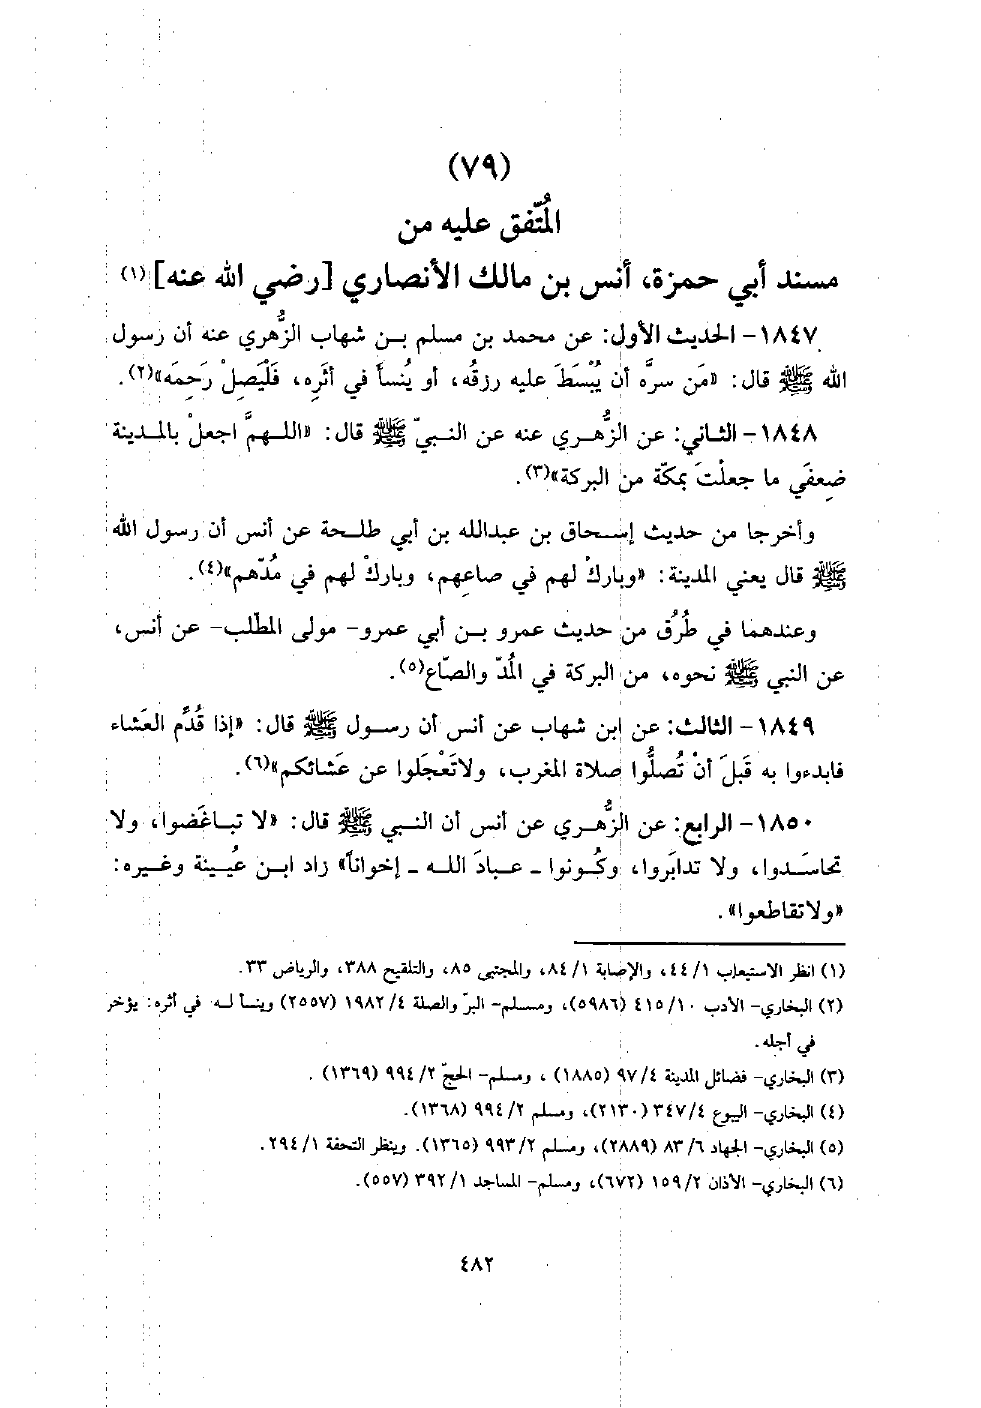 (٧٩)
المُتّفق عليه من
مسند أبي حمزة، أنس بن مالك الأنصاري [رضي الله عنه] (١)
١٨٤٧- الحديث الأول: عن محمد بن مسلم بن شهاب الزُّهري عنه أن رسول
الله ﷺ قال: «مَن سرَّه أن يُبْسَطَ عليه رزقُه، أو يُنسأ في أثَرِه، فَلْيَصِلْ رَحِمَه»(٢).
١٨٤٨- الثاني: عن الزُّهري عنه عن النبيّ ﷺ قال: «اللهمَّ اجعلْ بالمدينة
ضِعفَي ما جعلْتَ بمكّة من البركة»(٣).
وأخرجا من حديث إسحاق بن عبدالله بن أبي طلحة عن أنس أن رسول الله
ﷺ قال يعني المدينة: «وباركْ لهم في صاعِهم، وباركْ لهم في مُدّهم»(٤).
وعندهما في طُرُق من حديث عمرو بن أبي عمرو- مولى المطّلب- عن أنس،
عن النبي ﷺ نحوه، من البركة في المُدّ والصّاع(٥).
١٨٤٩- الثالث: عن ابن شهاب عن أنس أن رسول ﷺ قال: «إذا قُدِّم العَشاء
فابدءوا به قَبلَ أنْ تُصلُّوا صلاة المغرب، ولاتَعْجَلوا عن عَشائكم»(٦).
١٨٥٠- الرابع: عن الزُّهري عن أنس أن النبي ﷺ قال: «لا تباغَضوا، ولا
تحاسَدوا، ولا تدابَروا، وكُونوا ـ عبادَ الله ـ إخواناً» زاد ابن عُيينة وغيره:
«ولاتقاطعوا».
(١) انظر الاستيعاب ٤٤/١، والإصابة ٨٤/١، والمجتبى ٨٥، والتلقيح ٣٨٨، والرياض ٣٣.
(٢) البخاري- الأدب ٤١٥/١٠ (٥٩٨٦)، ومسلم- البرّ والصلة ١٩٨٢/٤ (٢٥٥٧) وينسأ له في أثره: يؤخر
في أجله.
(٣) البخاري- فضائل المدينة ٩٧/٤ (١٨٨٥) ، ومسلم- الحجّ ٩٩٤/٢ (١٣٦٩) .
(٤) البخاري- البيوع ٣٤٧/٤ (٢١٣٠)، ومسلم ٩٩٤/٢ (١٣٦٨).
(٥) البخاري- الجهاد ٨٣/٦ (٢٨٨٩)، ومسلم ٩٩٣/٢ (١٣٦٥). وينظر التحفة ٢٩٤/١.
(٦) البخاري- الأذان ١٥٩/٢ (٦٧٢)، ومسلم- المساجد ٣٩٢/١ (٥٥٧).
٤٨٢